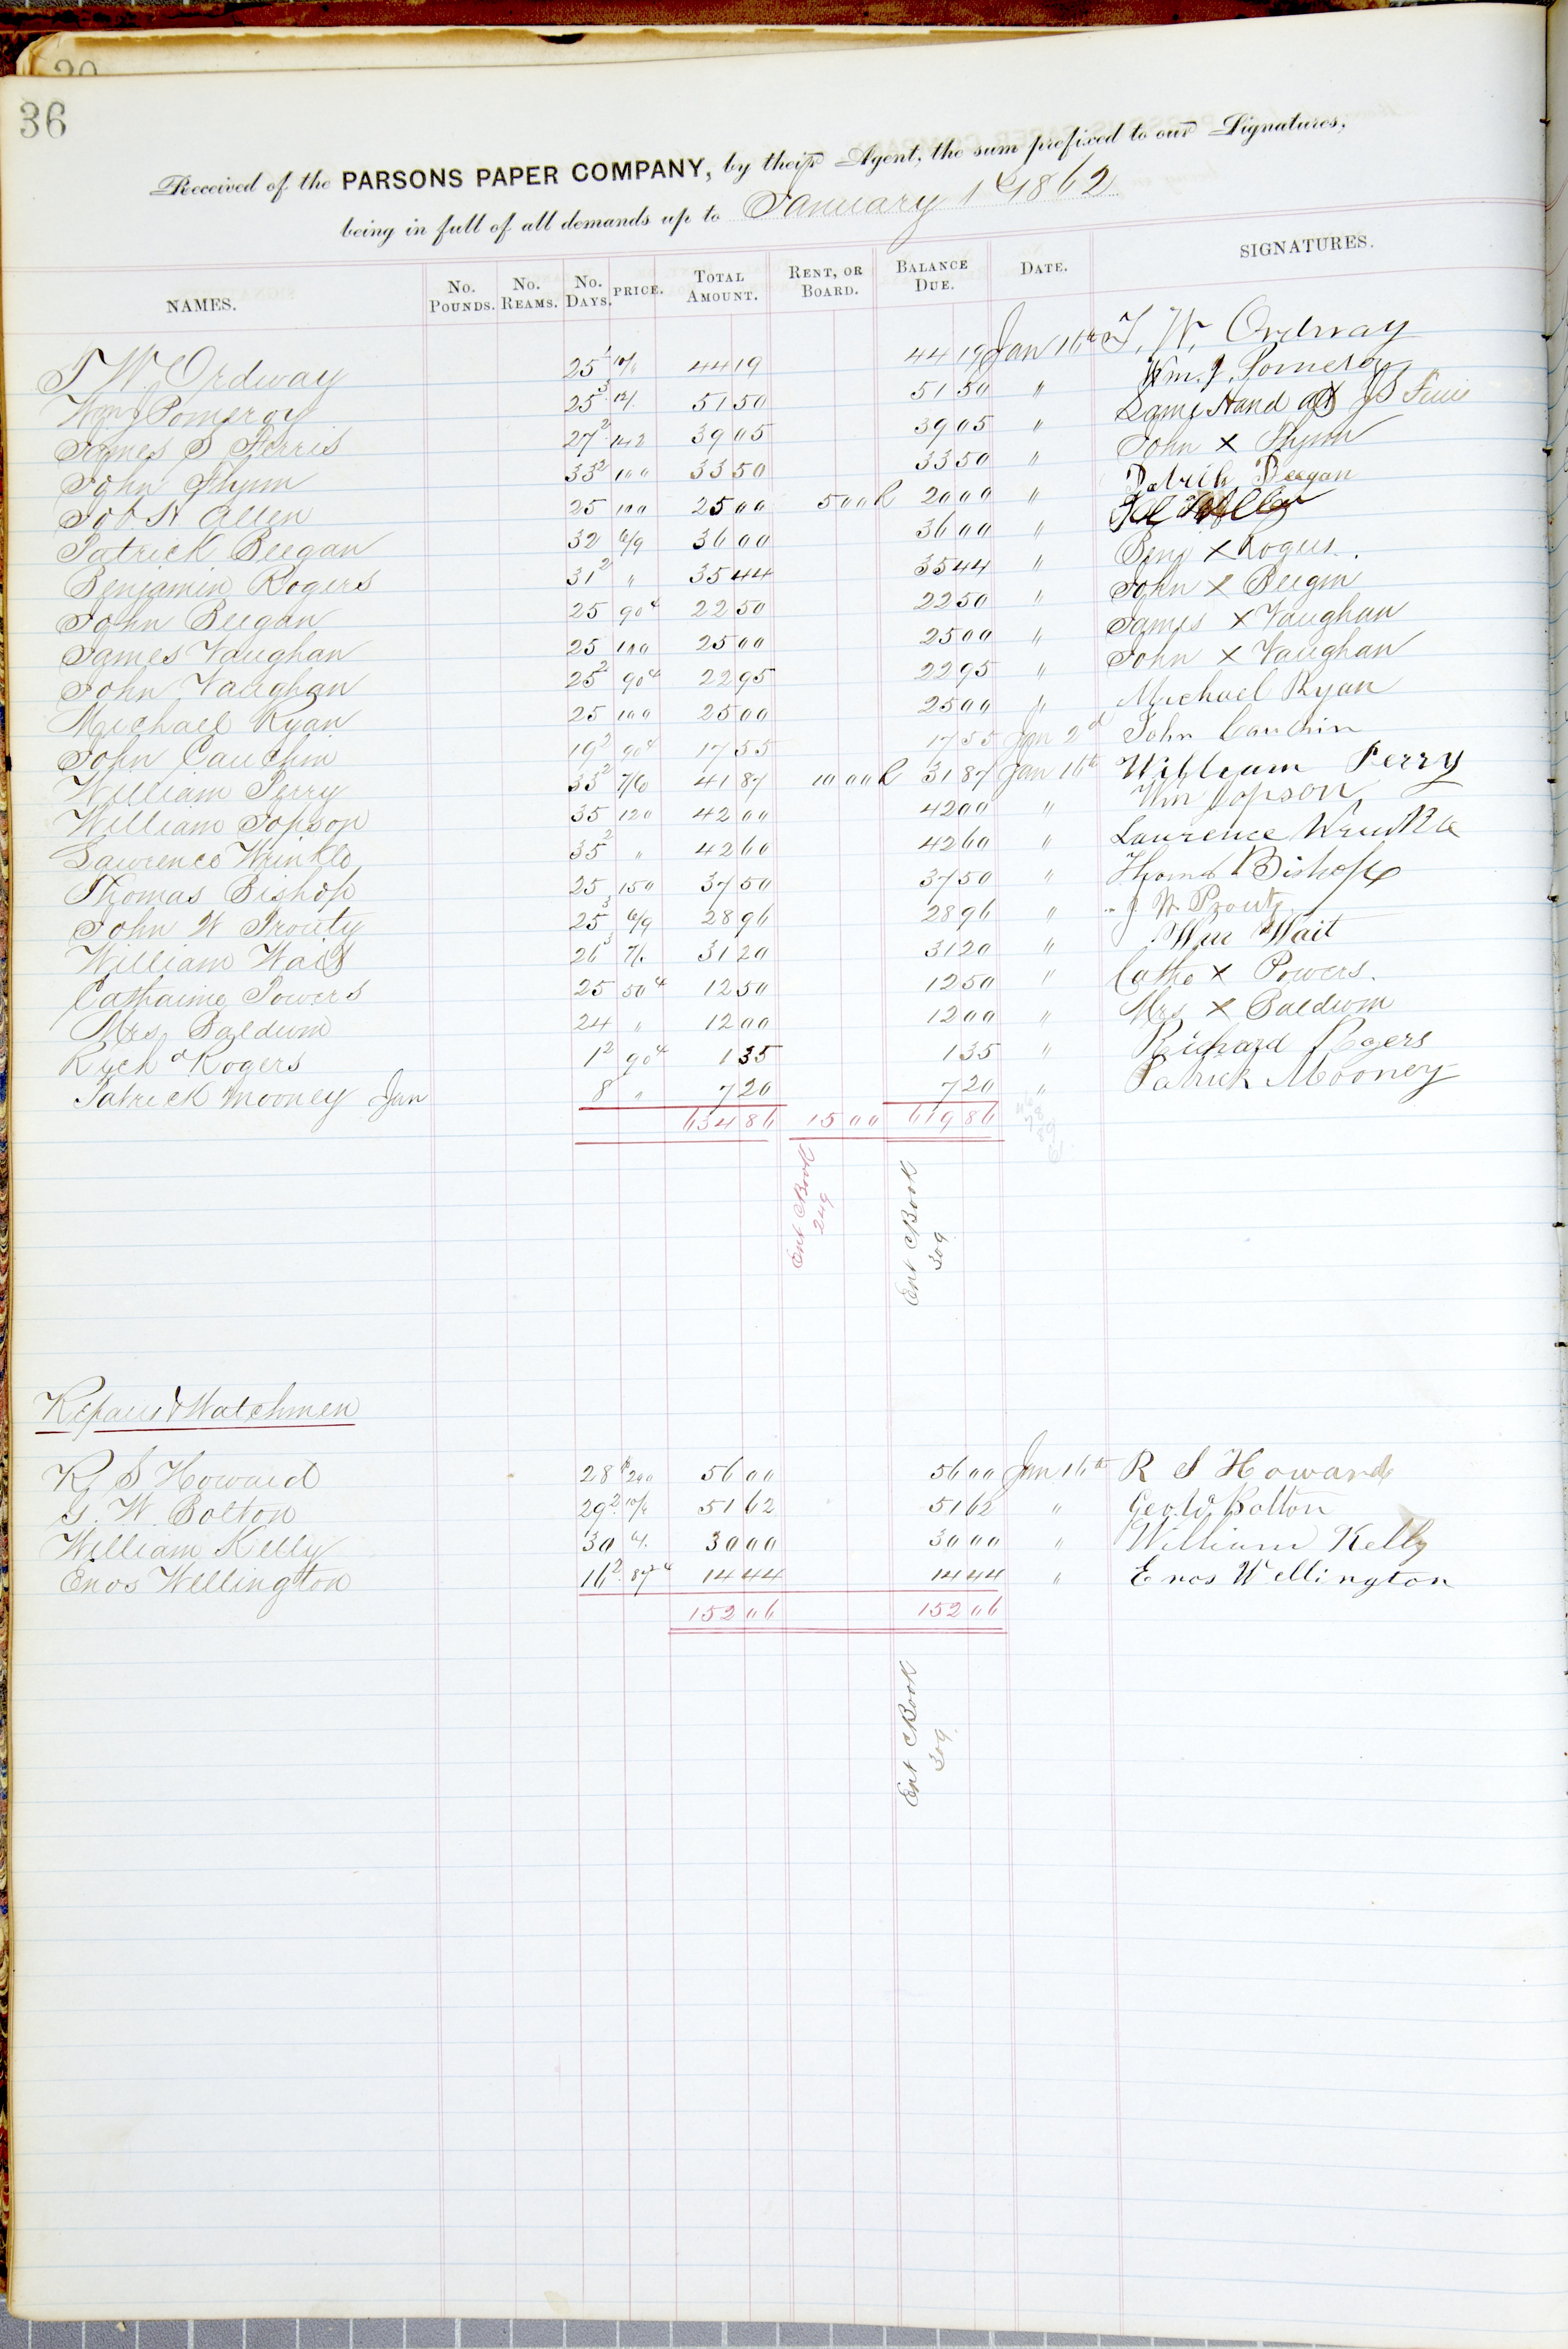 36
Received of the PARSONS PAPER COMPANY, by their Agent, the sum prefixed to our Signatures,
being in full of all demands up to January 1st 1862
NAMES. No. Pounds. No. Reams. No. Days. PRICE. Total Amount. Rent, or Board. Balance Due. Date. SIGNATURES.
T W. Ordway 25 1 10/6 44 19 44 19 Jan 16th T. W. Ordway
Wm J Pomeroy 25 3 12/. 51 50 51 50 " Wm. J. Pomeroy
James S Ferris 27 2 142 39 05 39 05 " Lame Hand of JS
John Flynn 33 2 100 33 50 33 50 " John x Flynn
Job H Allen 25 100 25 00 5 00 R 20 00 " Patrick Beegan
Patrick Beegan 32 6/9 36 00 36 00 " Allen
Benjamin Rogers 31 2 " 35 44 35 44 " Benj x Rogers.
John Beegan 25 90 ¢ 22 50 22 50 " John x Beegan
James Vaughan 25 100 25 00 25 00 " James x Vaughan
John Vaughan 25 2 90 ¢ 22 95 22 95 " John x Vaughan
Michael Ryan 25 100 25 00 25 00 " Michael Ryan
John Cauchin 19 2 90 ¢ 17 55 17 55 Jan 2d John Cauchin
William Perry 33 2 7/6 41 87 10 00 R 31 87 Jan 16th William Perry
William Jopson 35 120 42 00 42 00 " Wm Jopson
Lawrence Wrinkle 35 2 " 42 60 42 60 " Laurence Wrinkle
Thomas Bishop 25 150 37 50 37 50 " Thomas Bishop
John W Prouty 25 3 6/9 28 96 28 96 " J. W. Prouty
William Wait 26 3 7/. 31 20 31 20 " Wm Wait
Catharine Powers 25 50 ¢ 12 50 12 50 " Cathe x Powers.
Mrs. Baldwin 24 " 12 00 12 00 " Mrs x Baldwin
Rich d Rogers 1 2 90 ¢ 1 35 1 35 " Richard Rogers
Patrick Mooney Jan 8 " 7 20 7 20 " Patrick Mooney
634 86 15 00 619 86
Ent CBook
249
Ent CBook
309
Repairs & Watchmen
R S Howard 28 200 56 00 56 00 Jan 16th R S Howard
G. W. Bolton 29 2 10/6 51 62 51 62 " Geo W Bolton
William Kelly 30 6/. 30 00 30 00 " William Kelly
Enos Wellington 16 2 87 ¢ 14 44 14 44 " Enos Wellington
152 06 152 06
Ent CBook
309